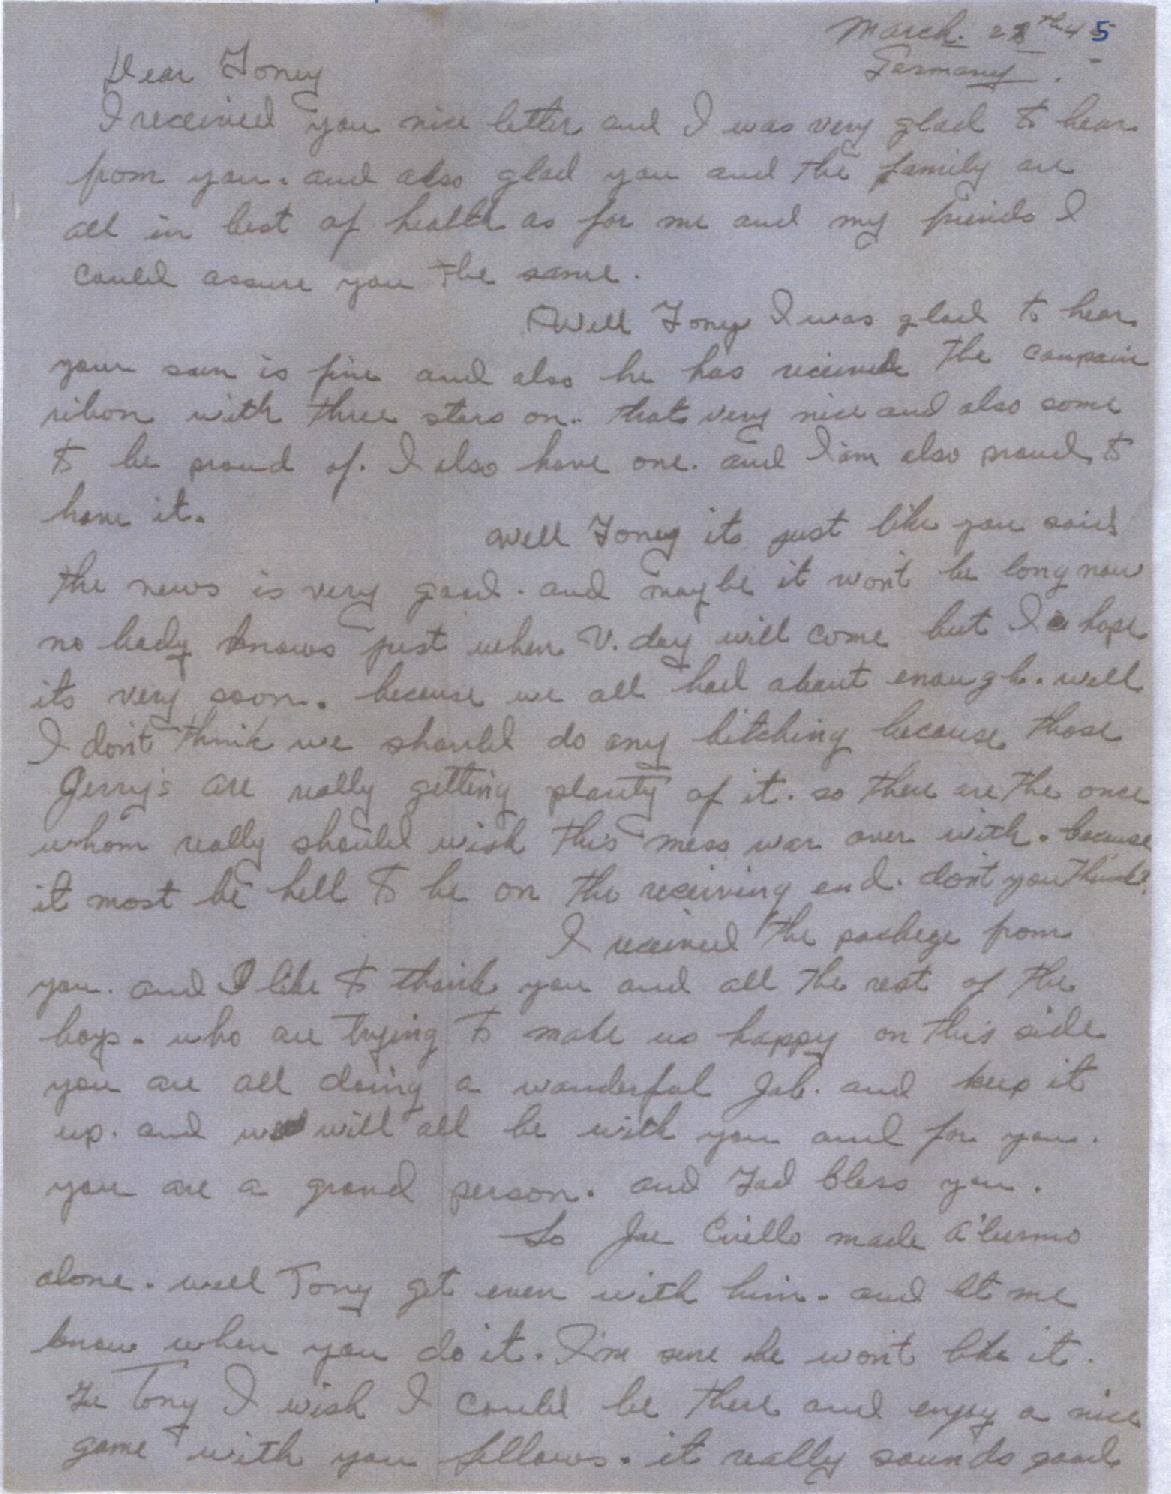 March. 28th 45
Germany.
Dear Toney
I received you nice letter and I was very glad to hear
from you. and also glad you and the family are
all in best of health as for me and my friends I
could assure you the same.
Well Toney I was glad to hear
your son is fine and also he has received the campain
ribon with three stars on.. that very nice and also some
to be proud of. I also have one. and I am also proud to
have it.
Well Toney its just like you said
the news is very good. and maybe it won't be long now
no body knows just when V. day will come but I hope
its very soon. because we all had about enough. well
I don't think we should do any bitching because those
Jerry's are really getting planty of it. so there are the once
whom really should wish this mess war over with. because
it most be hell to be on the receiving end. don't you think?
I received the packege from
you. and I like to thank you and all the rest of the
boys. who are trying to make us happy on this side
you are all doing a wonderful Job. and keep it
up. and we will all be with you and for you.
you are a grand person. and God bless you.
So Joe made
alone. well Tony get even with him. and let me
know when you do it. I'm sure he won't like it.
Ge Tony I wish I could be there and enjoy a nice
game with you fellows. it really sounds good